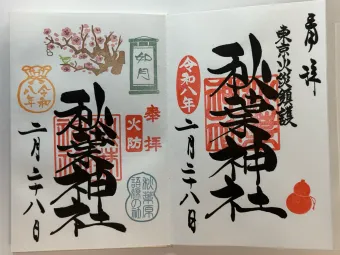 奉拝
東京火災鎮護
秋葉神社
令和八年
二月二十八日
如月
奉拝
火防
秋葉神社
令和八年
二月二十八日